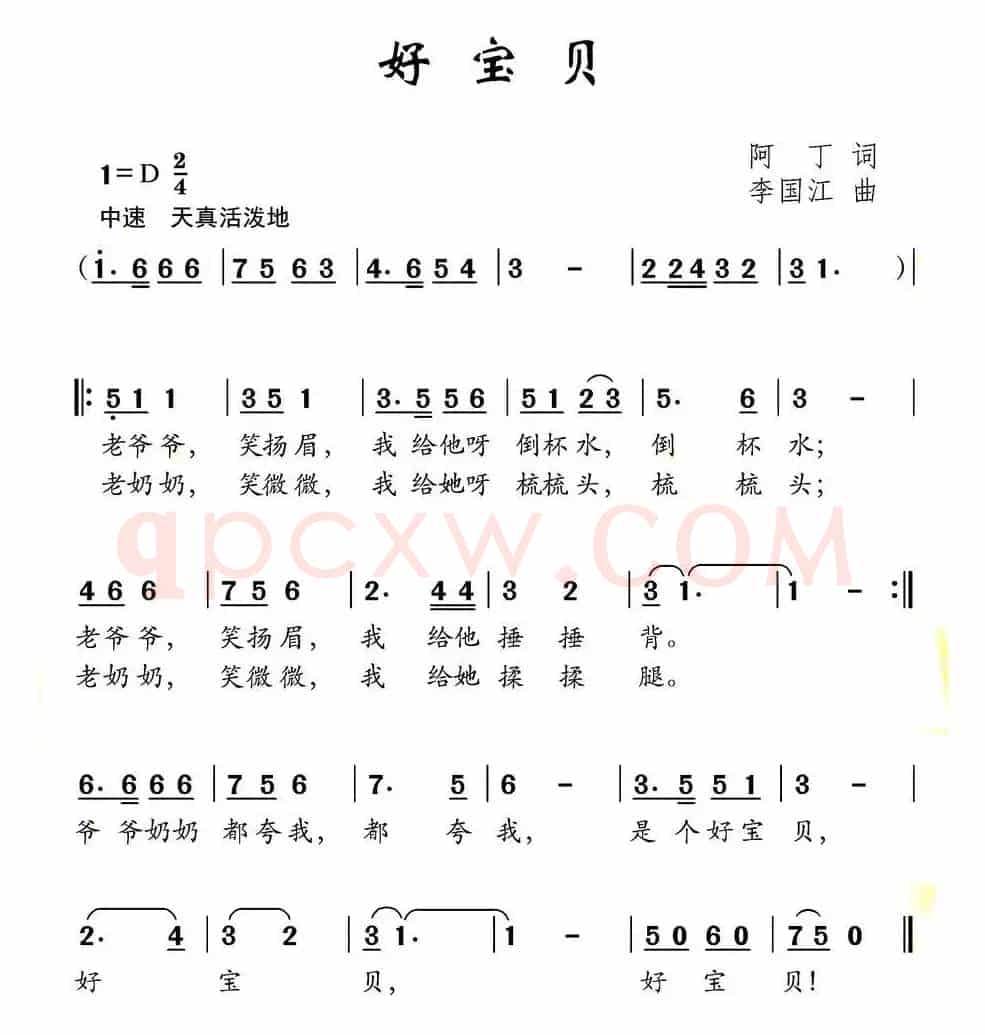 好宝贝
阿丁词
1=D 2/4
李国江曲
中速 天真活泼地
(1̇. 6 6 6 | 7 5 6 3 | 4. 6 5 4 | 3 - | 2 2 4 3 2 | 3 1. )|
‖: 5̣ 1 1 | 3 5 1 | 3. 5 5 6 | 5 1 2 3 | 5. 6 | 3 - |
老爷爷, 笑扬眉, 我给他呀 倒杯水, 倒杯水;
老奶奶, 笑微微, 我给她呀 梳梳头, 梳梳头;
qpcxw.COM
4 6 6 | 7 5 6 | 2. 4 4 | 3 2 | 3 1. | 1 - :‖
老爷爷, 笑扬眉, 我给他捶捶背。
老奶奶, 笑微微, 我给她揉揉腿。
6. 6 6 6 | 7 5 6 | 7. 5 | 6 - | 3. 5 5 1 | 3 - |
爷爷奶奶都夸我, 都夸我, 是个好宝贝,
2. 4 | 3 2 | 3 1. | 1 - | 5 0 6 0 | 7 5 0 ‖
好宝贝, 好宝贝!